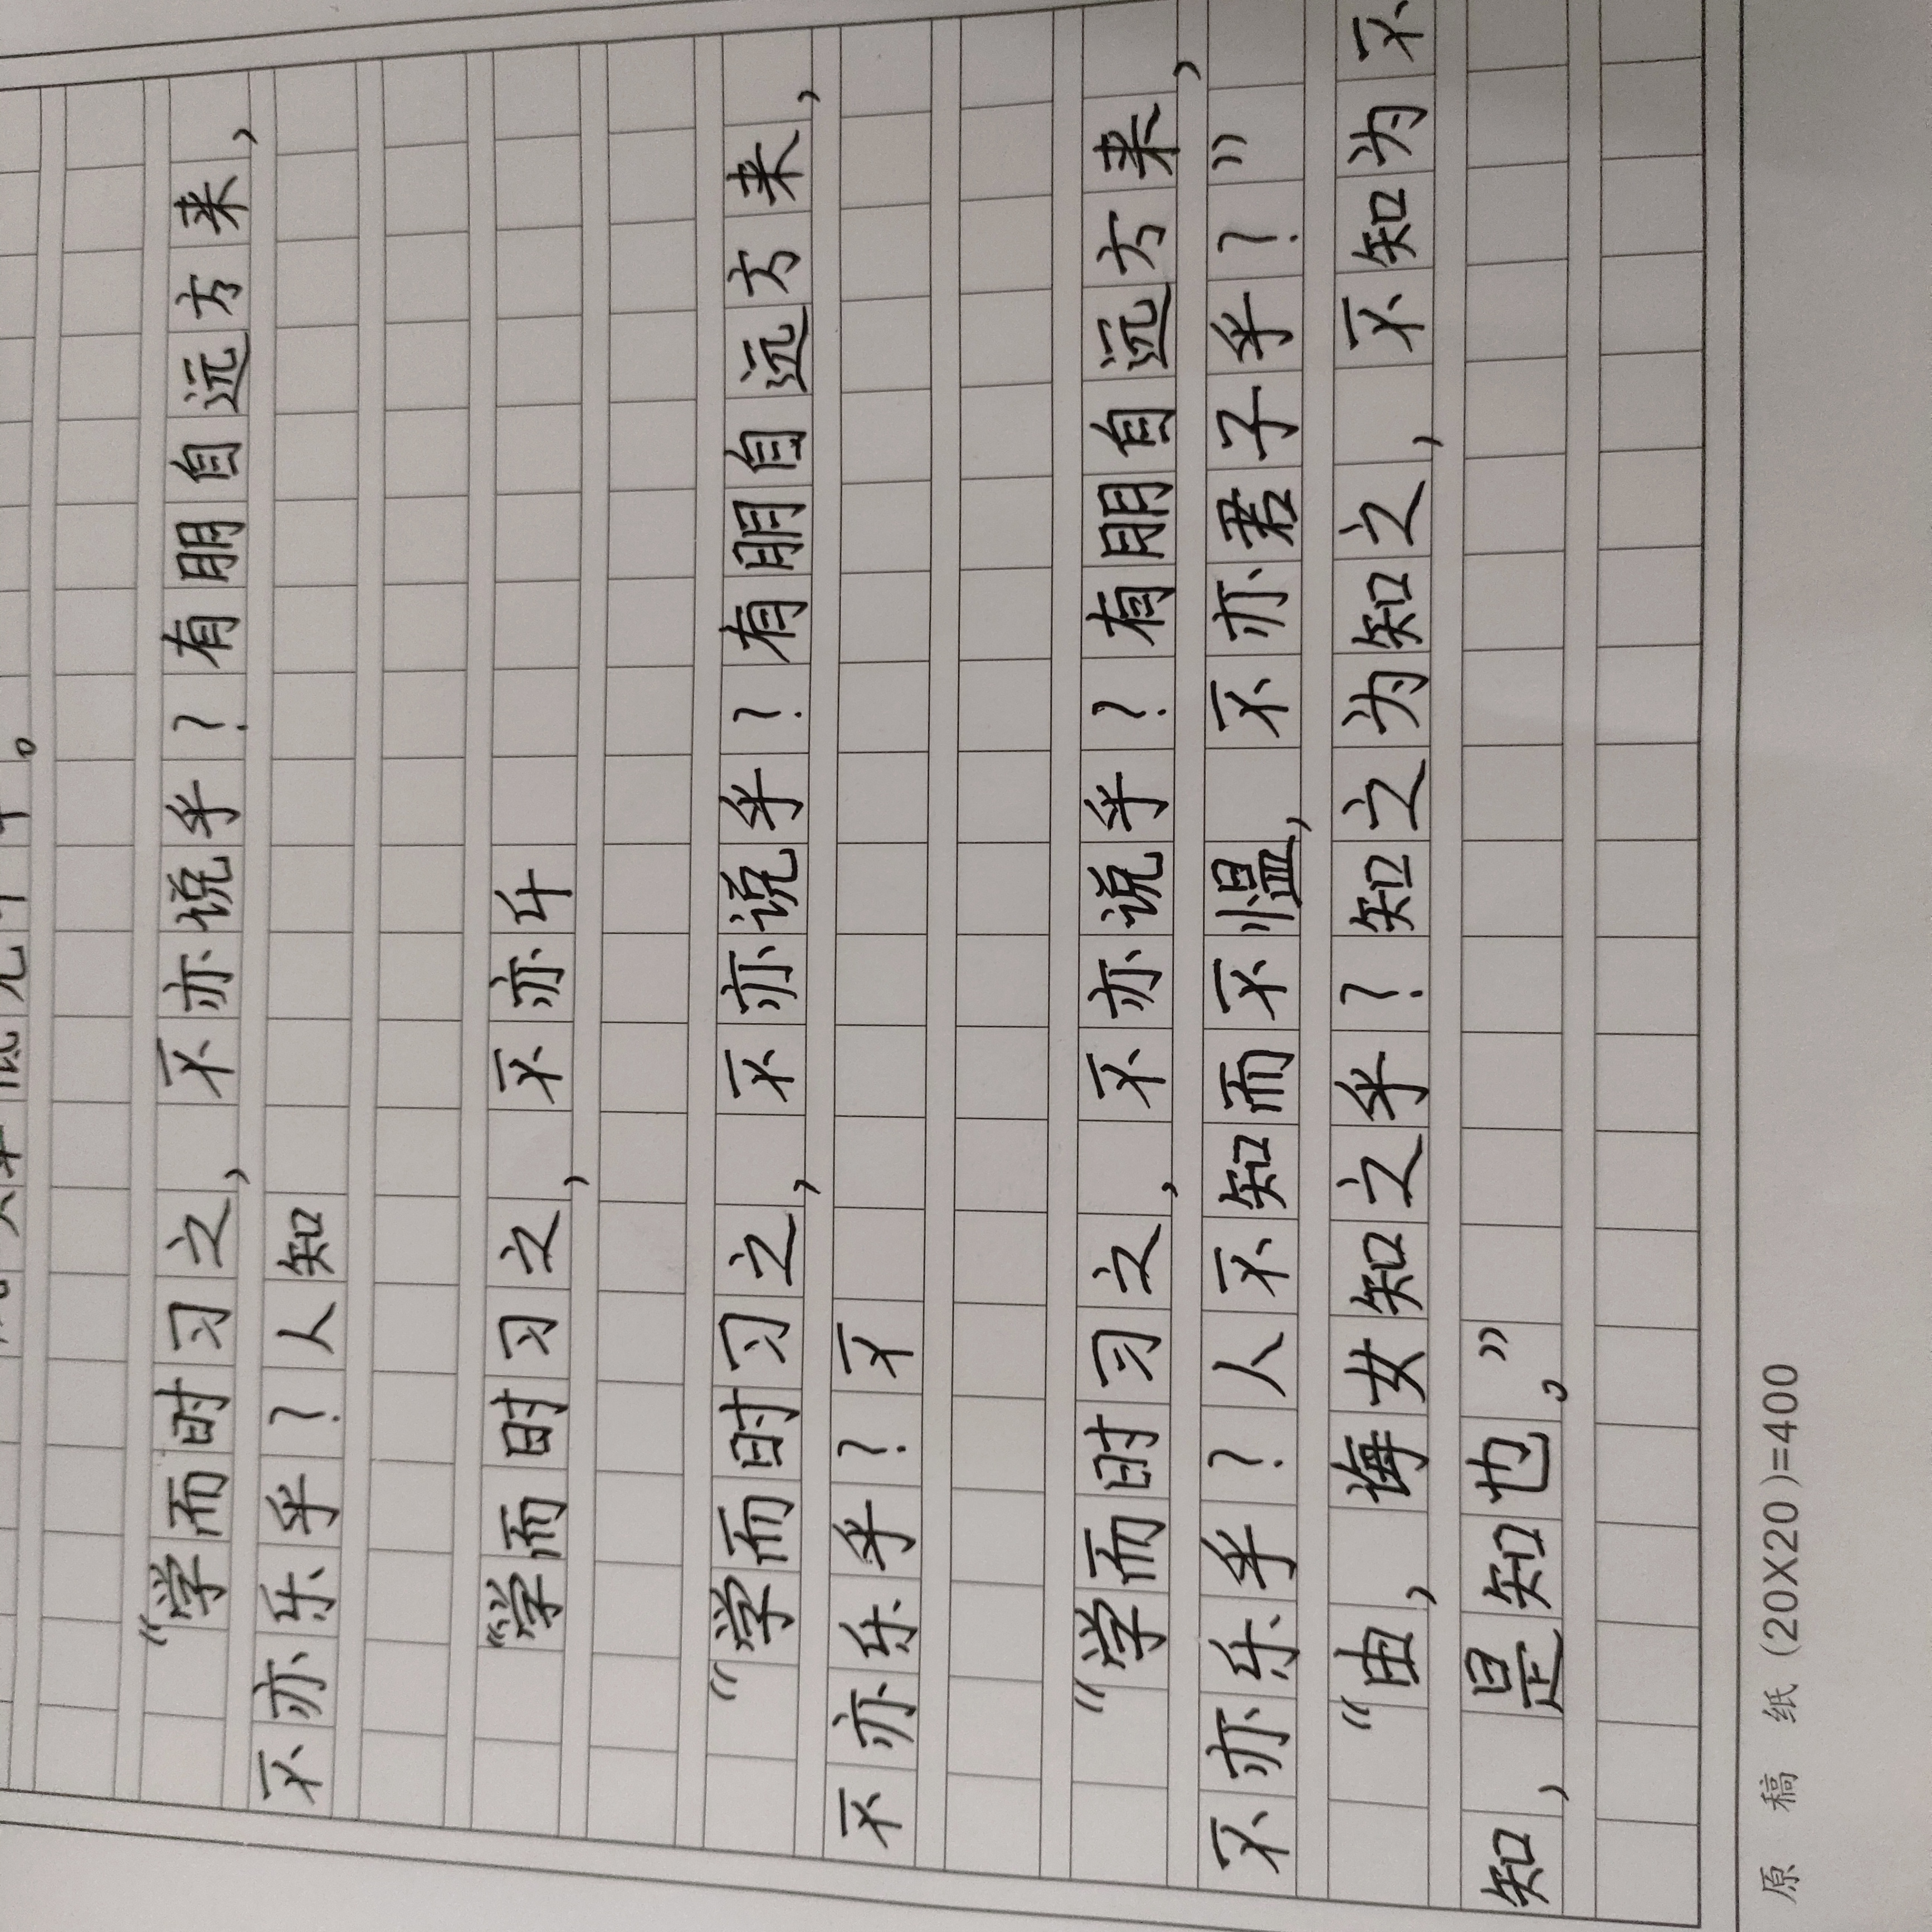 “学而时习之，不亦说乎？有朋自远方来，
不亦乐乎？人知
“学而时习之，不亦
“学而时习之，不亦说乎？有朋自远方来，
不亦乐乎？不
“学而时习之，不亦说乎？有朋自远方来，
不亦乐乎？人不知而不愠，不亦君子乎？”
“由，诲女知之乎？知之为知之，不知为不
知，是知也。”
原稿纸(20X20)=400